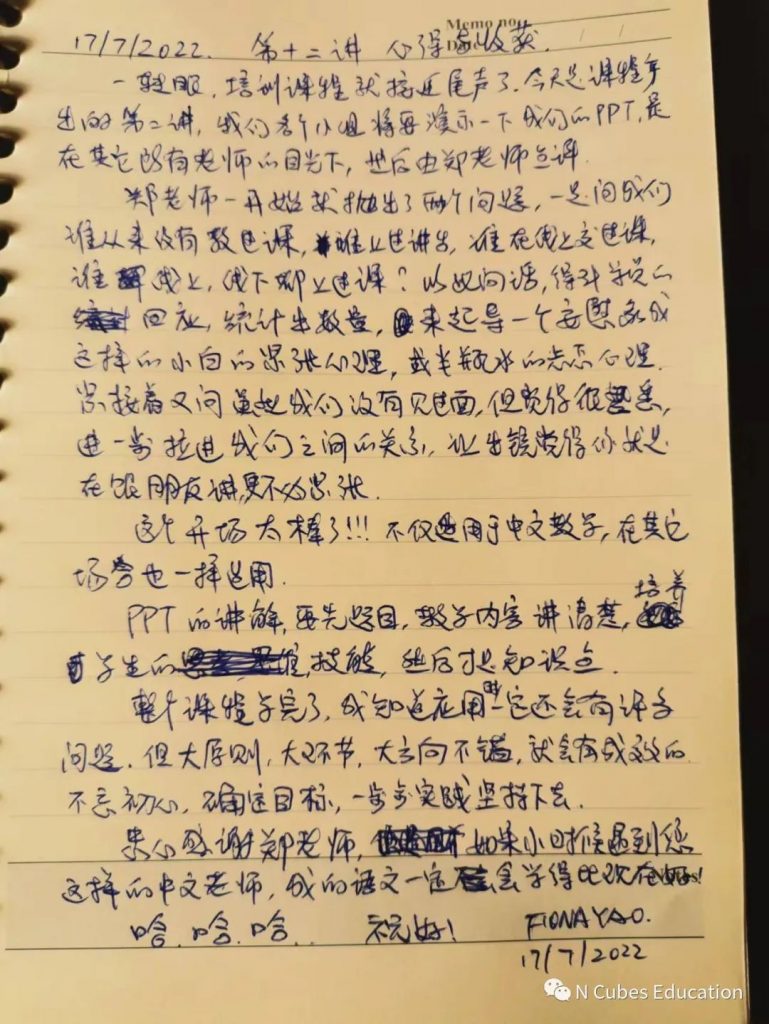 Memo no.
17/7/2022. 第十二讲 心得与收获.
Date
一转眼,培训课程就接近尾声了.今天是课程产
出的第二讲,我们各个小组将要演示一下我们的PPT,是
在其它所有老师的目光下,然后由郑老师点评.
郑老师一开始就抛出了两个问题,一是问我们
谁从来没有教过课,谁上过讲台,谁在线上交过课,
谁线上,线下都上过课?以此问话,得到学员的
回应,统计出数量,来起导一个安慰
这样的小白的紧张心理,或半瓶水的忐忑心理.
紧接着又问虽然我们没有见过面,但觉得很熟悉,
进一步拉进我们之间的关系,让出镜觉得你就是
在跟朋友讲,更不必紧张.
这个开场太棒了!!! 不仅适用于中文教学,在其它
场合也一样适用.
培养
PPT的讲解,要先题目,教学内容讲清楚,
学生的技能,然后才是知识点.
整个课程学完了,我知道应用时一定还会有许多
问题.但大原则,大环节,大方向不错,就会有成效的.
不忘初心,确定目标,一步步实践坚持下去.
衷心感谢郑老师,如果小时候遇到您
这样的中文老师,我的语文一定会学得比现在好!
哈.哈.哈. 祝好! FIONA YAO.
17/7/2022
N Cubes Education